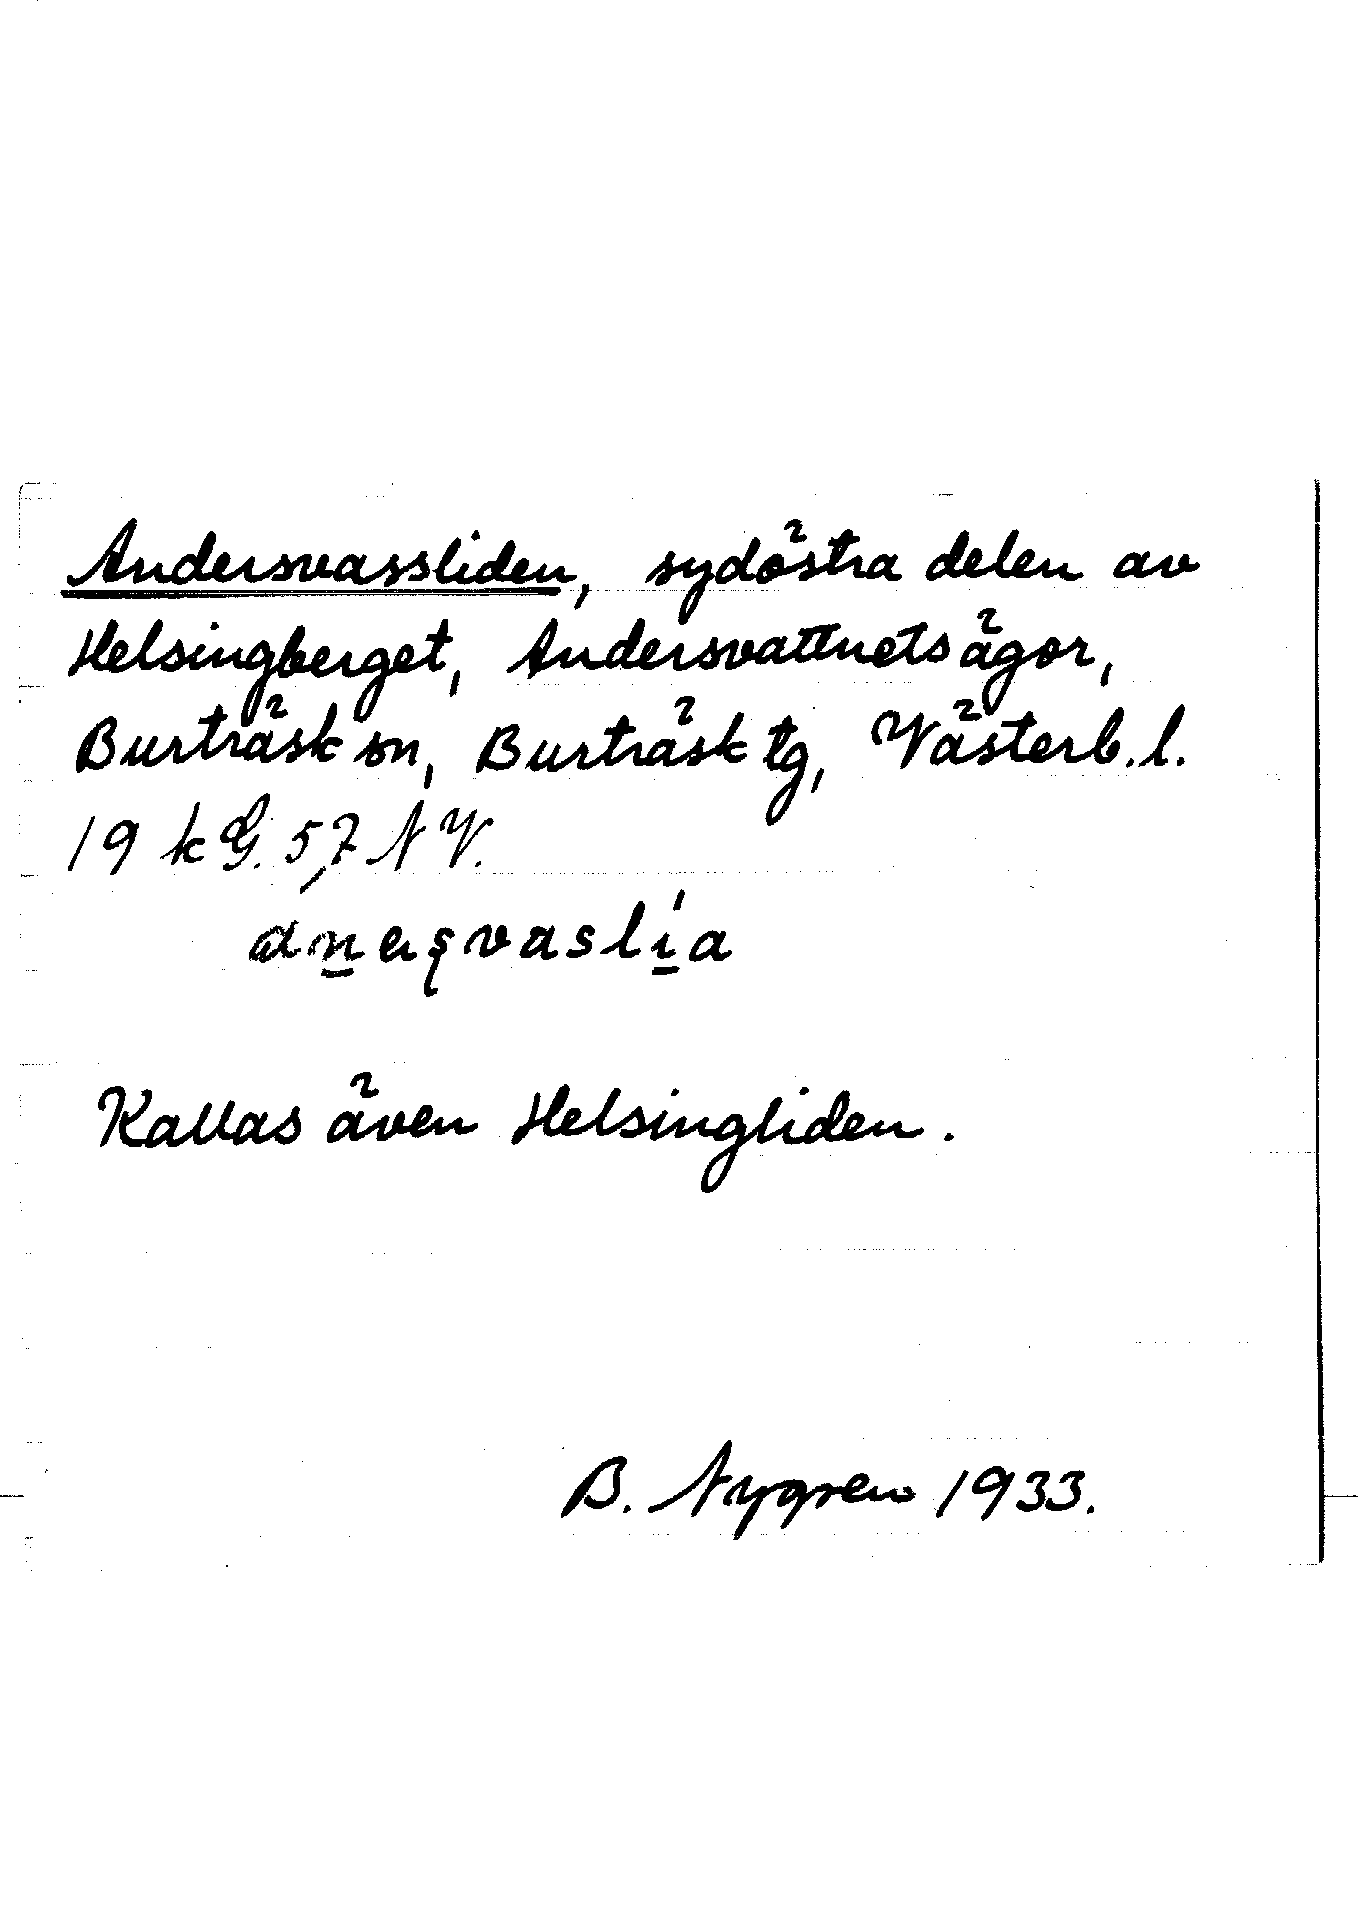 Andersvassliden, sydöstra delen av
Helsingberget, Andersvattnets ägor,
Burträsk sn, Burträsk tg, Västerb.l.
19 k G. 57 NV.
Kallas även Helsingliden.
B. Nygren 1933.